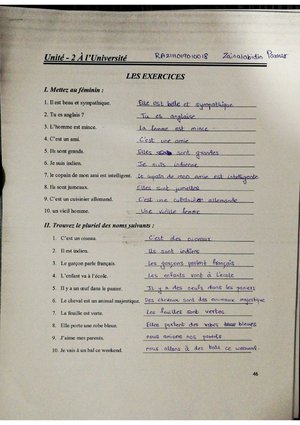 Unité - 2 À l'Université RA2111019010018 Zainalabidin
LES EXERCICES
I. Mettez au féminin :
1. Il est beau et sympathique. Elle est belle et sympathique
2. Tu es anglais ? Tu es anglaise
3. L'homme est mince. La femme est mince
4. C'est un ami. C'est une amie
5. Ils sont grands. Elles sont grandes
6. Je suis indien. Je suis indienne
7. le copain de mon ami est intelligent. la copain de mon amie est intelligente
8. Ils sont jumeaux. Elles sont jumelles
9. C'est un cuisinier allemand. C'est une cuisinier allemande
10. un vieil homme. Une vieille femme
II. Trouvez le pluriel des noms suivants :
1. C'est un oiseau. C'est des oiseaux
2. Il est indien. Ils sont indiens
3. Le garçon parle français. Les garçons parlent français
4. L'enfant va à l'école. Les enfants vont à l'école
5. Il y a un œuf dans le panier. Il y a des oeufs dans les paniers
6. Le cheval est un animal majestique. Des chevaux sont des animaux majestique
7. La feuille est verte. Les feuilles sont vertes
8. Elle porte une robe bleue. Elles portent des robes bleues
9. J'aime mes parents. nous aimons nos parents
10. Je vais à un bal ce weekend. nous allons à des bals ce weekend
46